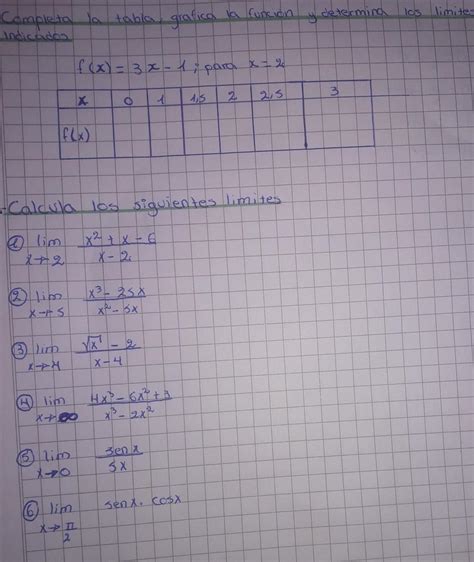 Completa la tabla, grafica la función y determina los limites
indicados
f(x) = 3x - 1 ; para x = 2
x 0 1 1,5 2 2,5 3
f(x)
- Calcula los siguientes limites
① lim x→2 x² + x - 6 / x - 2
② lim x→5 x³ - 25x / x² - 5x
③ lim x→4 √x - 2 / x - 4
④ lim x→∞ 4x³ - 6x² + 3 / x³ - 2x²
⑤ lim x→0 3senx / 5x
⑥ lim x→π/2 senx. cosx